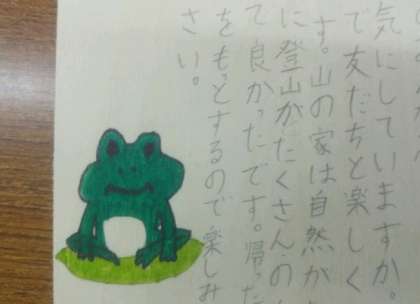 気にしていますか。
で友だちと楽しく
す。山の家は自然が
に登山がたくさんの
て良かったです。帰った
をもっとするので楽しみ
さい。